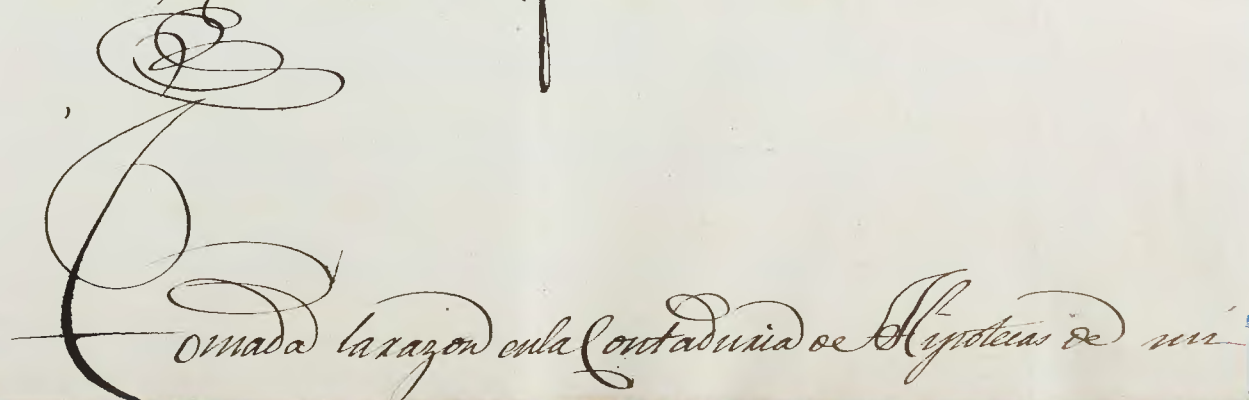 Tomada la razon en la Contaduria de Hipotecas de mi